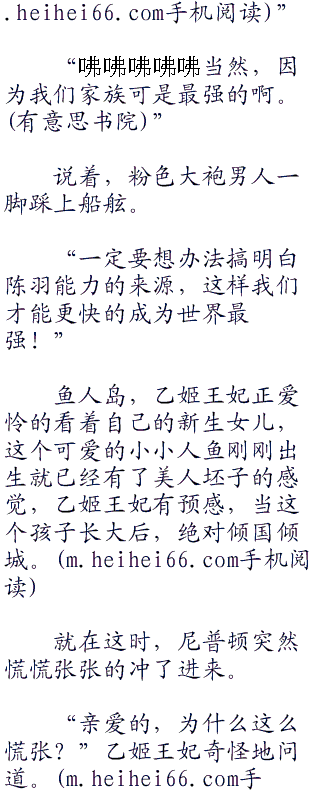 .heihei66.com手机阅读)”
“咈咈咈咈咈当然，因
为我们家族可是最强的啊。
(有意思书院)”
说着，粉色大袍男人一
脚踩上船舷。
“一定要想办法搞明白
陈羽能力的来源，这样我们
才能更快的成为世界最
强！”
鱼人岛，乙姬王妃正爱
怜的看着自己的新生女儿，
这个可爱的小小人鱼刚刚出
生就已经有了美人坯子的感
觉，乙姬王妃有预感，当这
个孩子长大后，绝对倾国倾
城。(m.heihei66.com手机阅
读)
就在这时，尼普顿突然
慌慌张张的冲了进来。
“亲爱的，为什么这么
慌张？”乙姬王妃奇怪地问
道。(m.heihei66.com手